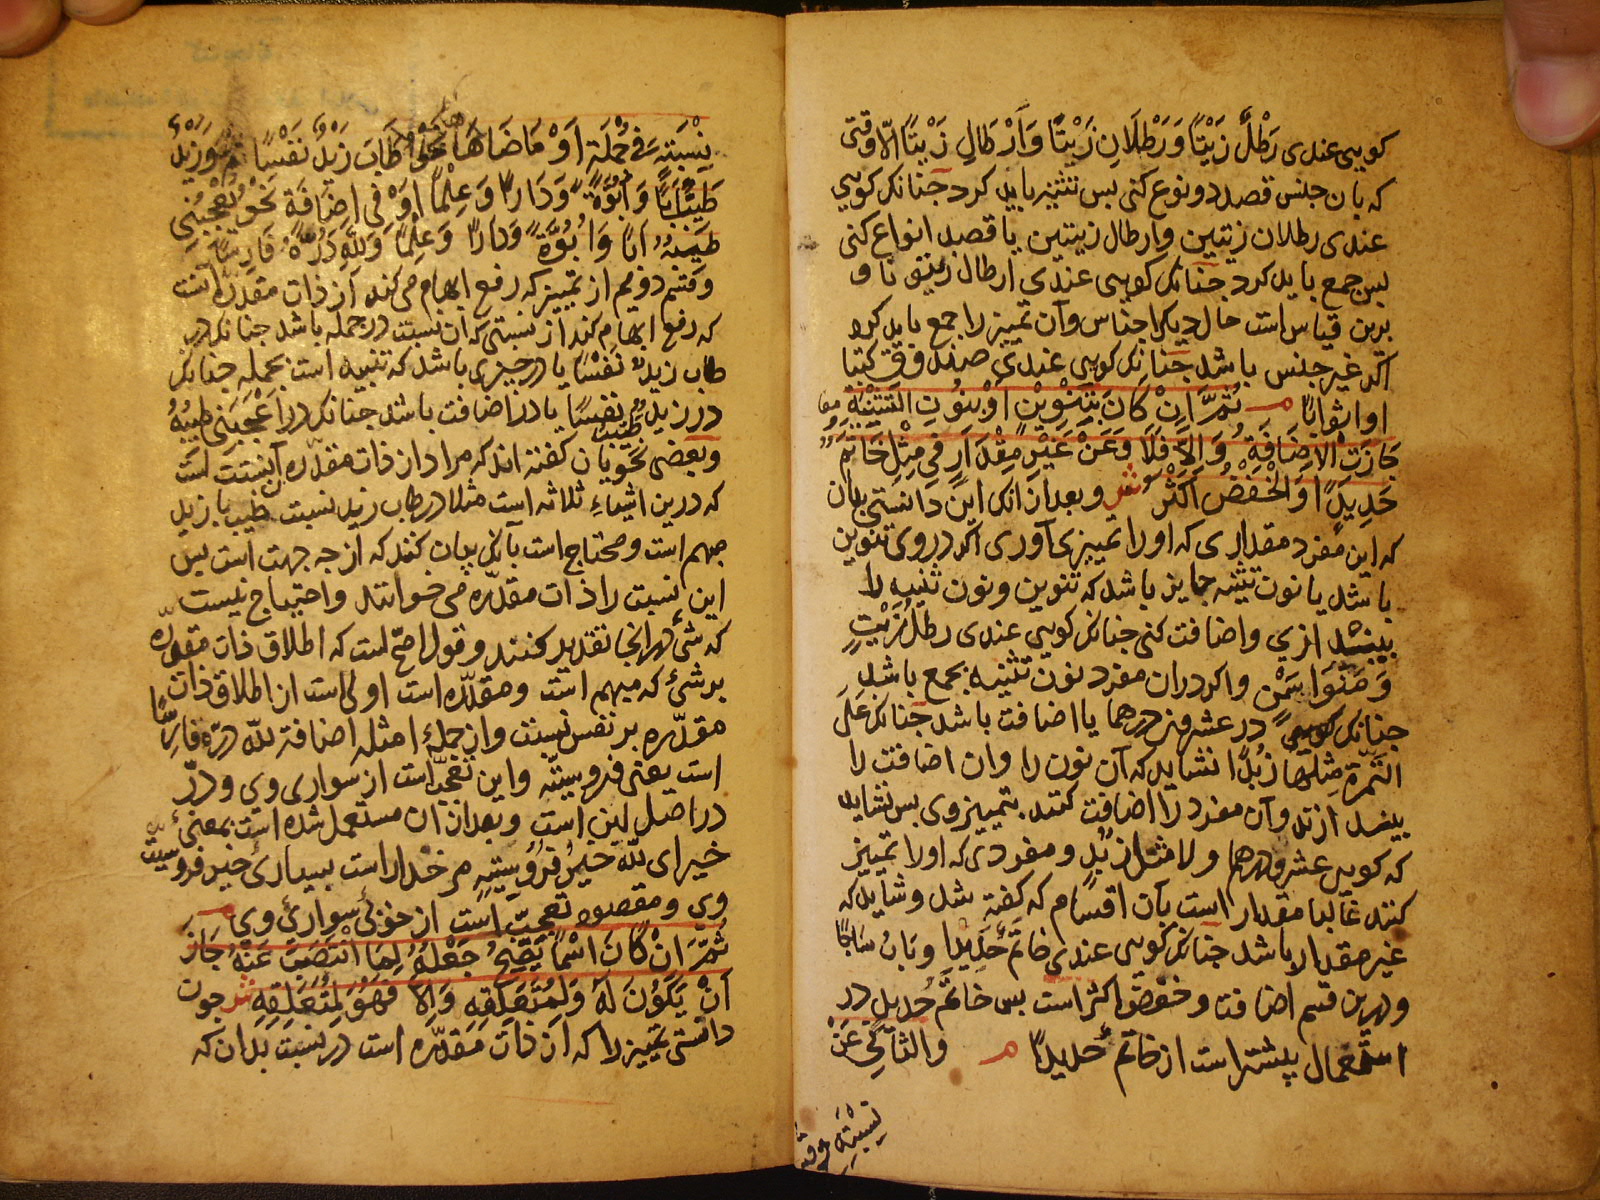 کویی عندی رَطْلٌ زَیْتًا وَرَطْلَانِ زَیْتًا وَاَرْطَالٍ زَیْتًا الّا وقتی
که بان جنس قصد دو نوع کنی بس تثنیه باید کرد جنانکه کویی
عندی رطلان زیتین وارطال زیتین یا قصد انواع کنی
بس جمع باید کرد جنانکه کویی عندی ارطال
برین قیاس است حال دیکر اجناس وآن تمییز را جمع باید کرد
اکر غیر جنس باشد جنانکه کویی عندی
او اثوابًا م ثُمَّ اِنْ کَانَ بِتَنْوِیْنٍ اَوْ بِنُونِ التَّثْنِیَةِ
جَازَتْ الْاِضَافَةِ وَاِلّاٰ فَلَا وَعَنْ غَیْرِ مِقْدَارٍ فِی مِثْلِ خَاتَمٌ
حَدِیدًا وَالْخَفْضُ اَکْثَرُ ش وبعد از انک این دانستی بدان
که این مفرد مقداری که او را تمییزی آوری اکر در وی تنوین
باشد یا نون تثنیه جایز باشد که تنوین ونون تثنیه را
بیفکنند ازی واضافت کنی جنانکه کویی عندی رطلُ زَیْتٍ
وَمَنَوَا سَمْنٍ واکر دران مفرد نون تثنیه بجمع باشد
جنانکه کویی در عشرون درهما یا اضافت باشد جنانکه عَلَی
التَّمْرَةِ مِثْلُهَا زُبْدًا نشاید که آن نون را وان اضافت را
بیفکند ازند وآن مفرد را اضافت کنند بتمییز وی بس نشاید
که کویی عشرو درهما ولا مثل زبْدٍ ومفردی که او را تمییز
کنند غالبا مقدار است بآن اقسام که کفته شد وشاید که
غیر مقدار باشد جنانکه کویی عندی خاتمٌ حَدِیدا وبَابٌ سَاجًا
ودرین قسم اضافت وخفض اکثر است بس خاتَمُ حَدیدٍ در
استعمال بیشتر است از خاتمٌ حدیدًا م وَالثَّانِی عَنْ
نِسْبَتِهِ
نِسْبَتِهِ فِی جُمْلَةٍ اَوْ مَا ضَاهَاهَا نَحْوُ طَابَ زَیْدٌ نَفْسًا وَزَیْدٌ
طَیِّبٌ اَبًا وَاُبُوَّةً وَدَارًا وَعِلْمًا اَوْ فِی اِضَافَةٍ نَحْوُ یُعْجِبُنِی
طِیْبُهُ اَبًا وَاُبُوَّةً وَدَارًا وَعِلْمًا وَلِلّٰهِ دَرُّهُ فَارِسًا
وقسم دویم از تمییز که رفع ابهام می کند از ذات مقدره آنست
که رفع ابهام کند از نسبتی که ان نسبت در جمله باشد جنانکه در
طاب زیدٌ نفْسًا یا در جیزی باشد که تشبیه است بجمله جنانکه
در زیدٌ طَیِّبٌ نفسًا یا در اضافت باشد جنانکه در اعْجَبَنِی طِیبُهُ
وبعضی نحویان کفته اند که مراد از ذات مقدّره آن نسبت است
که درین اشیاءِ ثلاثه است مثلا در طاب زید نسبت طیب با زید
مبهم است ومحتاج است بآنک بیان کنند که از جه جهت است بس
این نسبت را ذات مقدّره می خوانند واحتیاج نیست
که شئ در انجا تقدیر کنند وقول اصحّ است که اطلاق ذات مقدّره
بر شئ که مبهم است ومقدّره است اولی است از اطلاق ذات
مقدّره بر نفس نسبت واز جملهٔ امثله اضافة للّه درّه فَارِسًا
است یعنی فروسیته واین تعجّب است از سواری وی ودرّ
در اصل لبن است وبعد ازان مستعمل شده است بمعنیٔ
خیر ای للّه خَیرُ فُرُوسِیَّتِهِ مر خدا راست بسیاری خیر فروسیت
وی ومقصود تعجّب است از خوبی سواری وی م
ثُمَّ اِنْ کَانَ اسْمًا یَصِحُّ جَعْلُهُ لِمَا انْتَصَبَ عَنْهُ جَازَ
اَنْ یَکُوْنَ لَهُ وَلِمُتَعَلِّقِهِ وَاِلّاٰ فَهُوَ لِمُتَعَلِّقِهِ ش جون
دانستی تمییز را که از ذات مقدّره است در نسبت بدان که